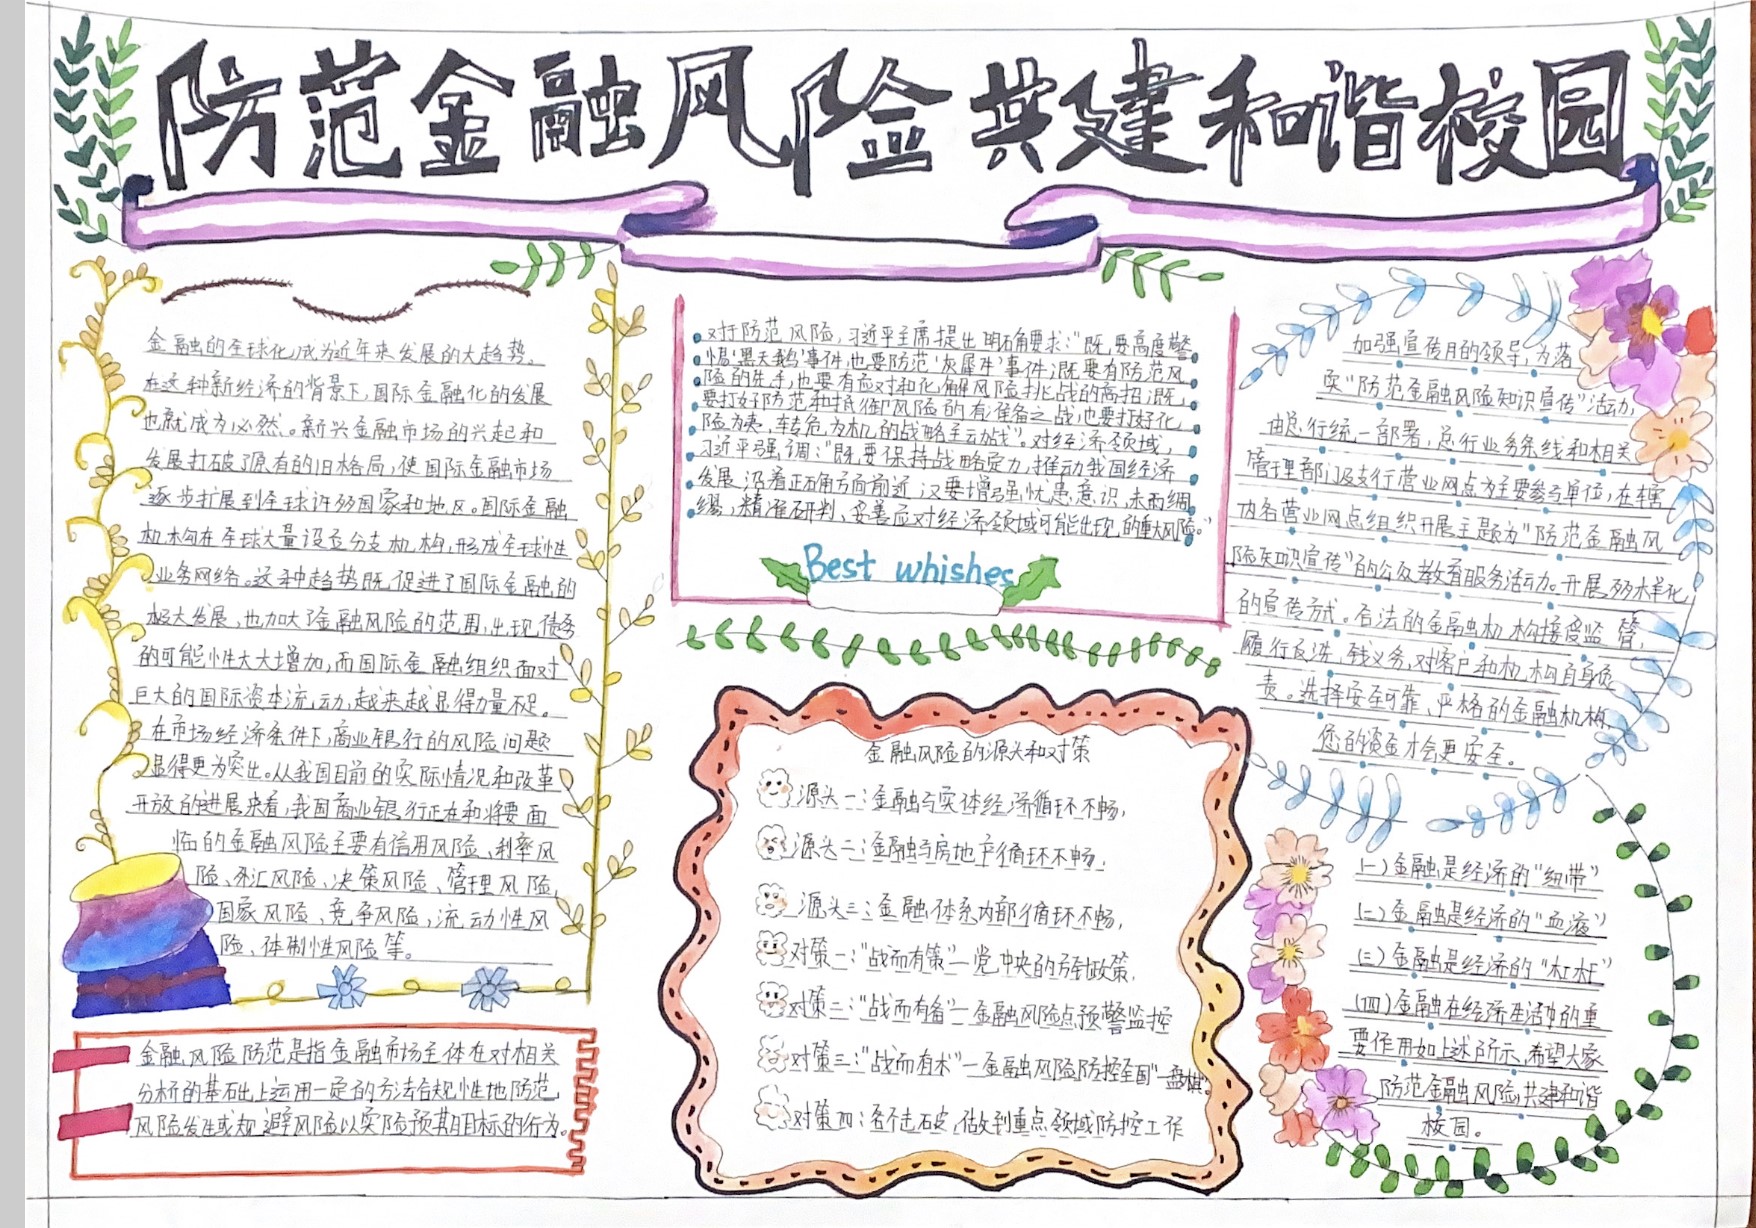 防范金融风险共建和谐校园
金融的全球化,成为近年来发展的大趋势。
在这种新经济的背景下,国际金融化的发展
也就成为必然。新兴金融市场的兴起和
发展打破了原有的旧格局,使国际金融市场
逐步扩展到全球许多国家和地区。国际金融
机构在全球大量设立分支机构,形成全球性
业务网络。这种趋势既促进了国际金融的
极大发展,也加大了金融风险的范围,出现债务
的可能性大大增加,而国际金融组织面对
巨大的国际资本流动,越来越显得力量不足。
在市场经济条件下,商业银行的风险问题
显得更为突出。从我国目前的实际情况和改革
开放的进展来看,我国商业银行正在和将要面
临的金融风险主要有信用风险、利率风
险、外汇风险、决策风险、管理风险,
国家风险、竞争风险,流动性风
险、体制性风险等。
金融风险防范是指金融市场主体在对相关
分析的基础上运用一定的方法合规性地防范,
风险发生或规避风险以实险预期目标的行为。
对于防范风险,习近平主席提出明确要求:“既要高度警
惕‘黑天鹅’事件,也要防范‘灰犀牛’事件;既要有防范风
险的先手,也要有应对和化解风险挑战的高招;既
要打好防范和抵御风险的有准备之战,也要打好化
险为夷,转危为机的战略主动战”。对经济领域,
习近平强调:“既要保持战略定力,推动我国经济
发展沿着正确方向前近,又要增强忧患意识,未雨绸
缪,精准研判、妥善应对经济领域可能出现的重大风险。”
Best whishes
金融风险的源头和对策
源头一:金融与实体经济循环不畅,
源头二:金融与房地产循环不畅;
源头三:金融体系内部循环不畅,
对策一:“战而有策”—党中央的方针政策,
对策二:“战而有备”—金融风险点预警监控
对策三:“战而有术”—金融风险防控全国“一盘棋”
对策四:各个击破,做到重点领域防控工作
加强宣传月的领导,为落
实“防范金融风险知识宣传”活动,
由总行统一部署,总行业务条线和相关
管理部门及支行营业网点为主要参与单位,在辖
内各营业网点组织开展主题为“防范金融风
险知识宣传”的公众教育服务活动。开展多样化
的宣传方式。合法的金融机构接受监管,
履行反洗钱义务,对客户和机构自身负
责。选择安全可靠,严格的金融机构
您的资金才会更安全。
(一)金融是经济的“纽带”
(二)金融是经济的“血液”
(三)金融是经济的“杠杆”
(四)金融在经济生活中的重
要作用如上述所示,希望大家
防范金融风险,共建和谐
校园。